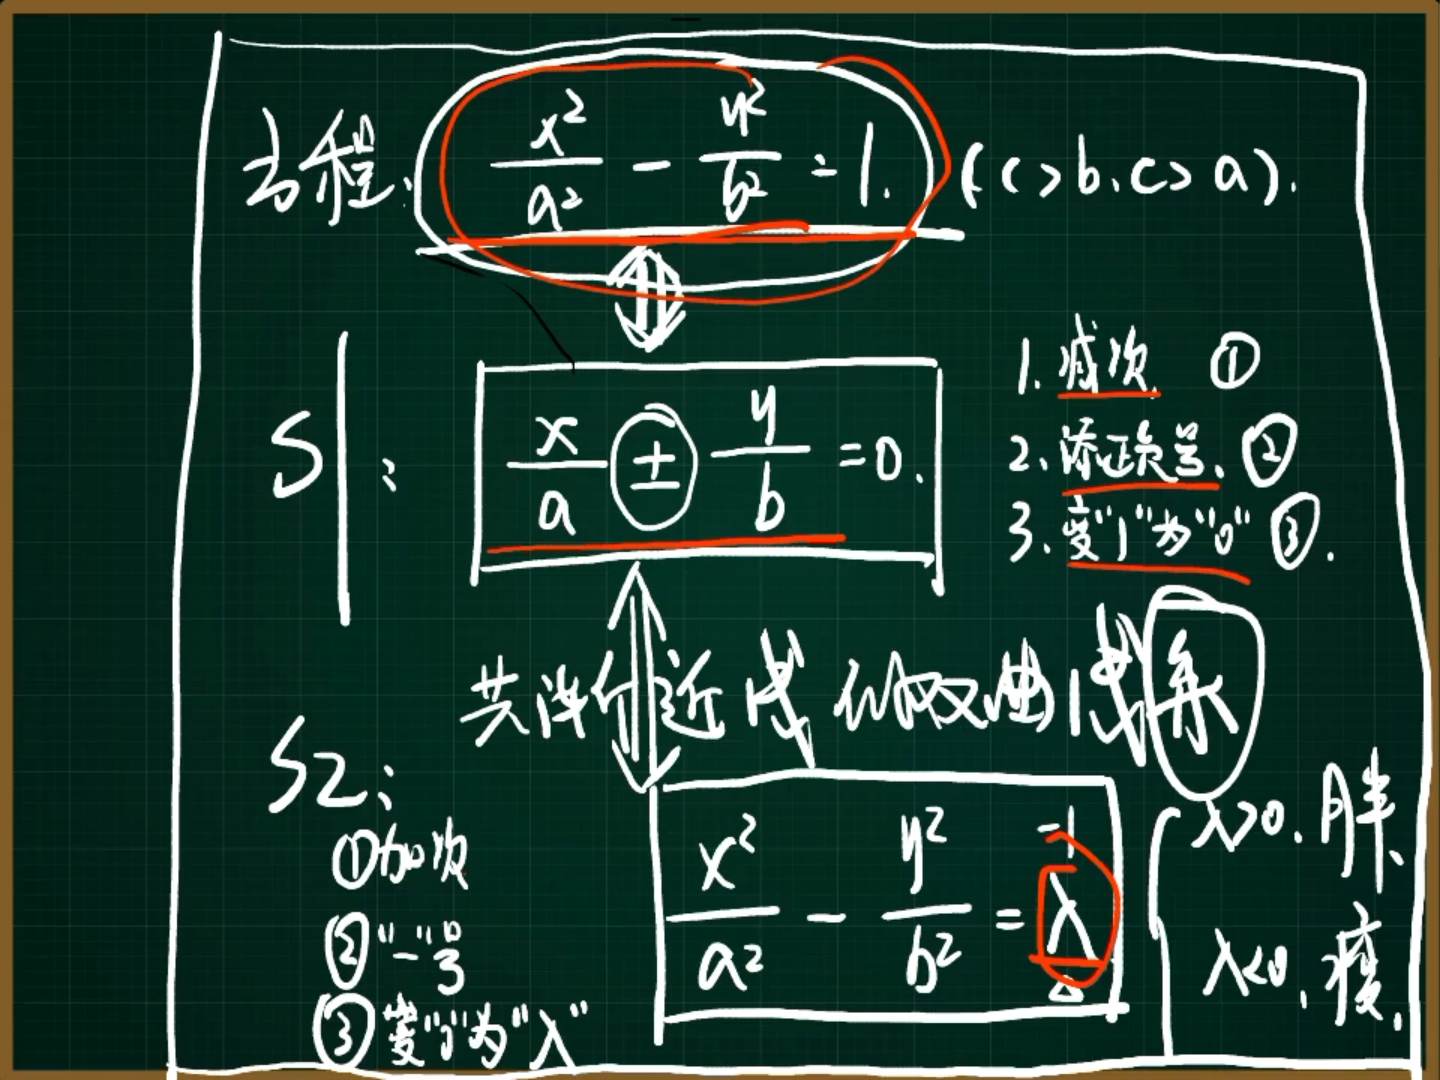 方程: x²/a² - y²/b² = 1. (c>b、c>a).
S1: x/a ± y/b = 0.
1. 减次 ①
2、添正负号、②
3、变"1"为"0" ③.
共渐近线的双曲线系
S2:
①加次
②"-"号
③变"0"为"λ"
x²/a² - y²/b² = λ
-1
λ>0. 胖、
λ<0. 瘦.